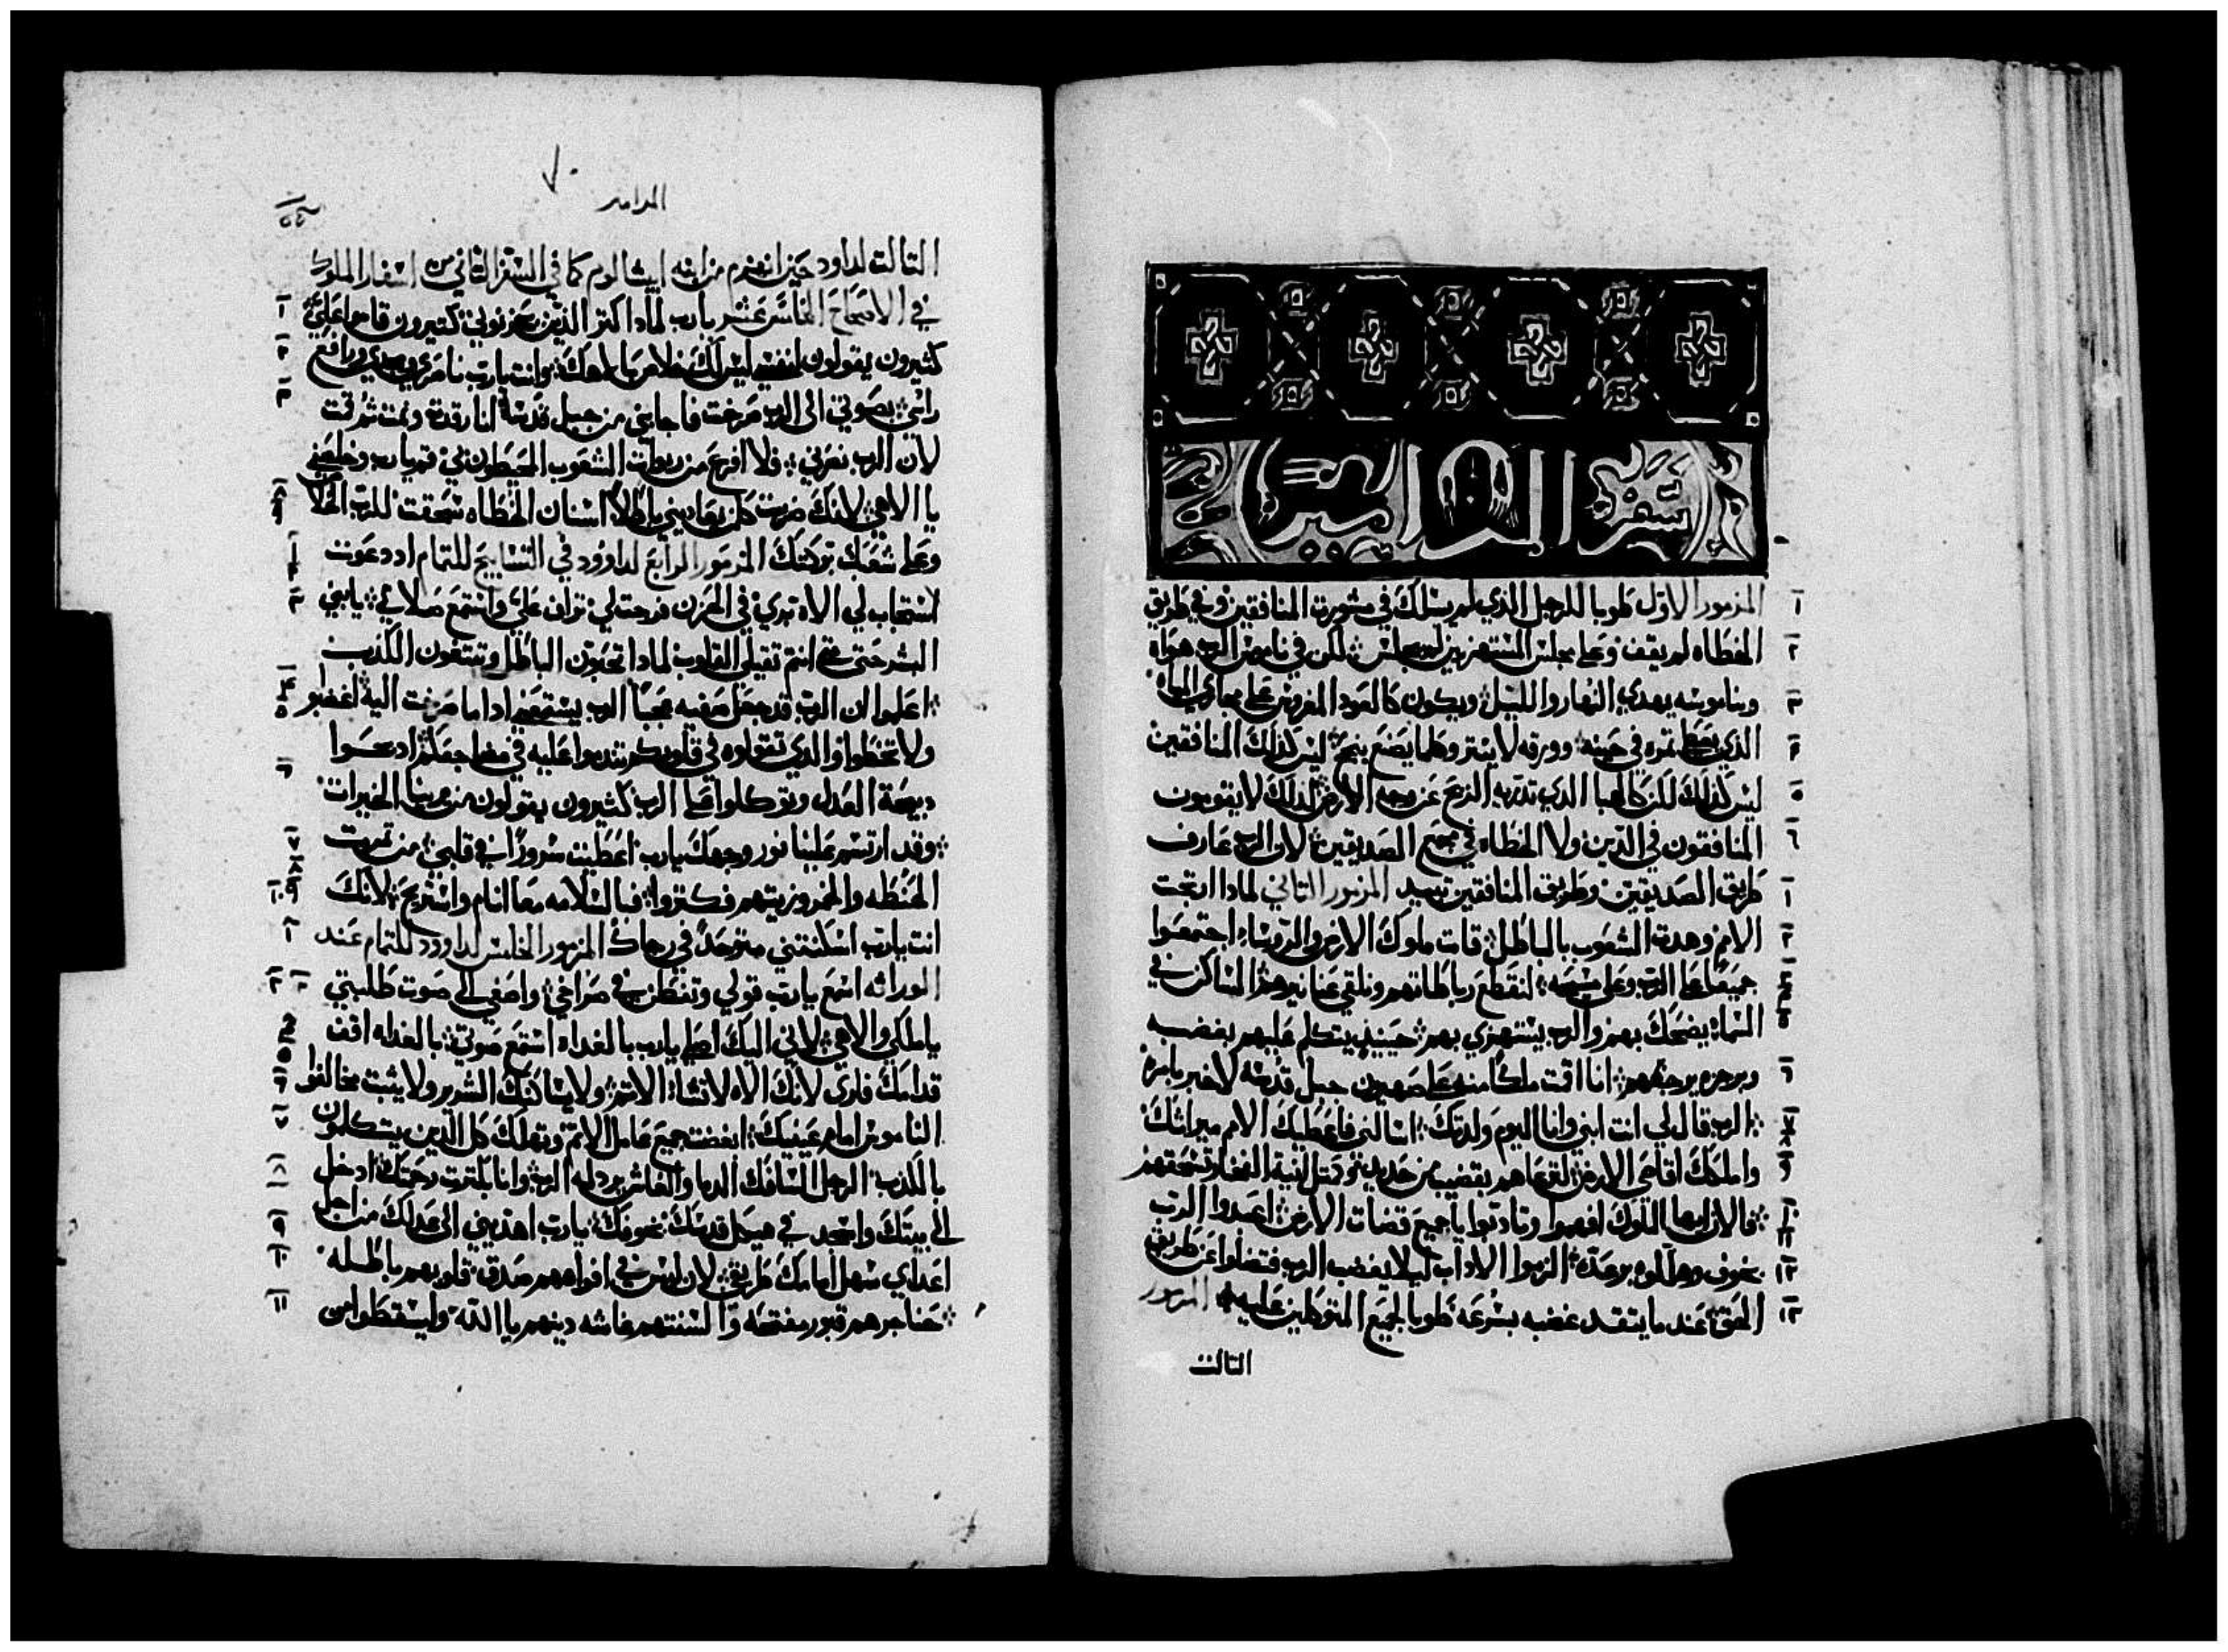 سفر المزامير
المزمور الاول طوبا للرجل الذي لم يسلك في مشورت المنافقين وفي طريق
الخطاه لم يقف وعلي مجلس المستهزيين لم يجلس لكن في ناموس الرب هواه
وبناموسه يهدي النهار والليل ويكون كالعود المغروس علي مجاري المياه
الذي يعطي تمره في حينه وورقه لا ينتر وكلما يصنع ينجح ليس كذلك المنافقين
ليس كذلك لكن كالهبا الذي تذريه الريح عن وجه الارض لذلك لا يقومون
المنافقون في الدين ولا الخطاه في مجمع الصديقين لان الرب عارف
طريق الصديقين وطريق المنافقين تبيد المزمور التاني لمادا ارتجت
الامم وهدت الشعوب بالباطل قامت ملوك الارض والروساء اجتمعوا
جميعا علي الرب وعلي مسيحه لنقطع رباطاتهم ونلقي عنا نيرهم الساكن في
السماء يضحك بهم والرب يستهزي بهم حينيذ يتكلم عليهم بغضبه
وبرجزه يرجفهم انا اقمت ملكا منه علي صهيون جبل قدسه لاخبر بامره
الرب قال لي انت ابني وانا اليوم ولدتك اسالني فاعطيك الامم ميراتك
واملكك اقاصي الارض لترعاهم بقضيب من حديد ومتل انية الفخار تسحقهم
فالان ايها الملوك افهموا وتادبوا يا جميع قضات الارض اعبدوا الرب
بخوف وهللوه برعده الزموا الاداب ليلا يغضب الرب فتضلوا عن طريق
الحق عند ما يتقد غضبه بسرعه طوبا لجميع المتوكلين عليه المزمور
التالت
٧٠
المزامير
التالت لداود حين انهزم من ابنه ابيشالوم كما في السفر التاني من اسفار الملوك
في الاصحاح الخامس عشر يارب لمادا كتر الذين يحزنوني كتيرون قاموا علي
كتيرون يقولون لنفسي ليس لك خلاص بالاهك وانت يارب ناصري ومجدي ورافع
راسي بصوتي الي الرب صرخت فاجابني من جبل قدسه انا رقدت ونمت تم قمت
لان الرب نصرني فلا افزع من ربوات الشعوب المحيطون بي قم يارب وخلصني
يا الاهي لانك ضربت كل من يعاديني باطلا اسنان الخطاه سحقت للرب الخلاص
وعلي شعبك بركتك المزمور الرابع لداوود في التسابيح للتمام اد دعوت
استجاب لي الاه بري في الحزن فرجت لي تراف علي واستمع صلاتي يا بني
البشر حتي متي انتم تقيلي القلوب لمادا تحبون الباطل وتبتغون الكذب
اعلموا ان الرب قد جعل صفيه عجبا الرب يستمعني ادا ما صرخت اليه اغضبو
ولا تخطوا والذي تقولوه في قلوبكم تندموا عليه في مضاجعكم ادبحوا
دبيحة العدل وتوكلوا علي الرب كتيرون يقولون من يرينا الخيرات
وقد ارتسم علينا نور وجهك يارب اعطيت سرورا في قلبي من تمرت
الحنطه والخمر وزيتهم فكتروا فبالسلامه معا انام واستريح لانك
انت يارب اسكنتني متوحدا في رجاك المزمور الخامس لداوود للتمام عند
الوراثه اسمع يارب قولي وتفطن في صراخي واصغي الي صوت طلبتي
يا ملكي والاهي لاني اليك اصلي يارب بالغداه استمع صوتي بالغداه اقف
قدامك فتري لانك الاه لا تشاء الاتم ولا يساكنك الشرير ولا يتبت مخالفوا
الناموس امام عينيك ابغضت جميع عاملي الاتم وتهلك كل الذين يتكلمون
بالكذب الرجل السافك الدما والغاش يردله الرب وانا بكترت رحمتك ادخل
الي بيتك واسجد في هيكل قدسك بخوفك يارب اهديني الي عدلك من اجل
اعداي سهل امامك طريقي لان ليس في افواههم صدق قلوبهم باطله
حناجرهم قبور مفتحه والسنتهم غاشه دينهم يا الله وليسقطوا من